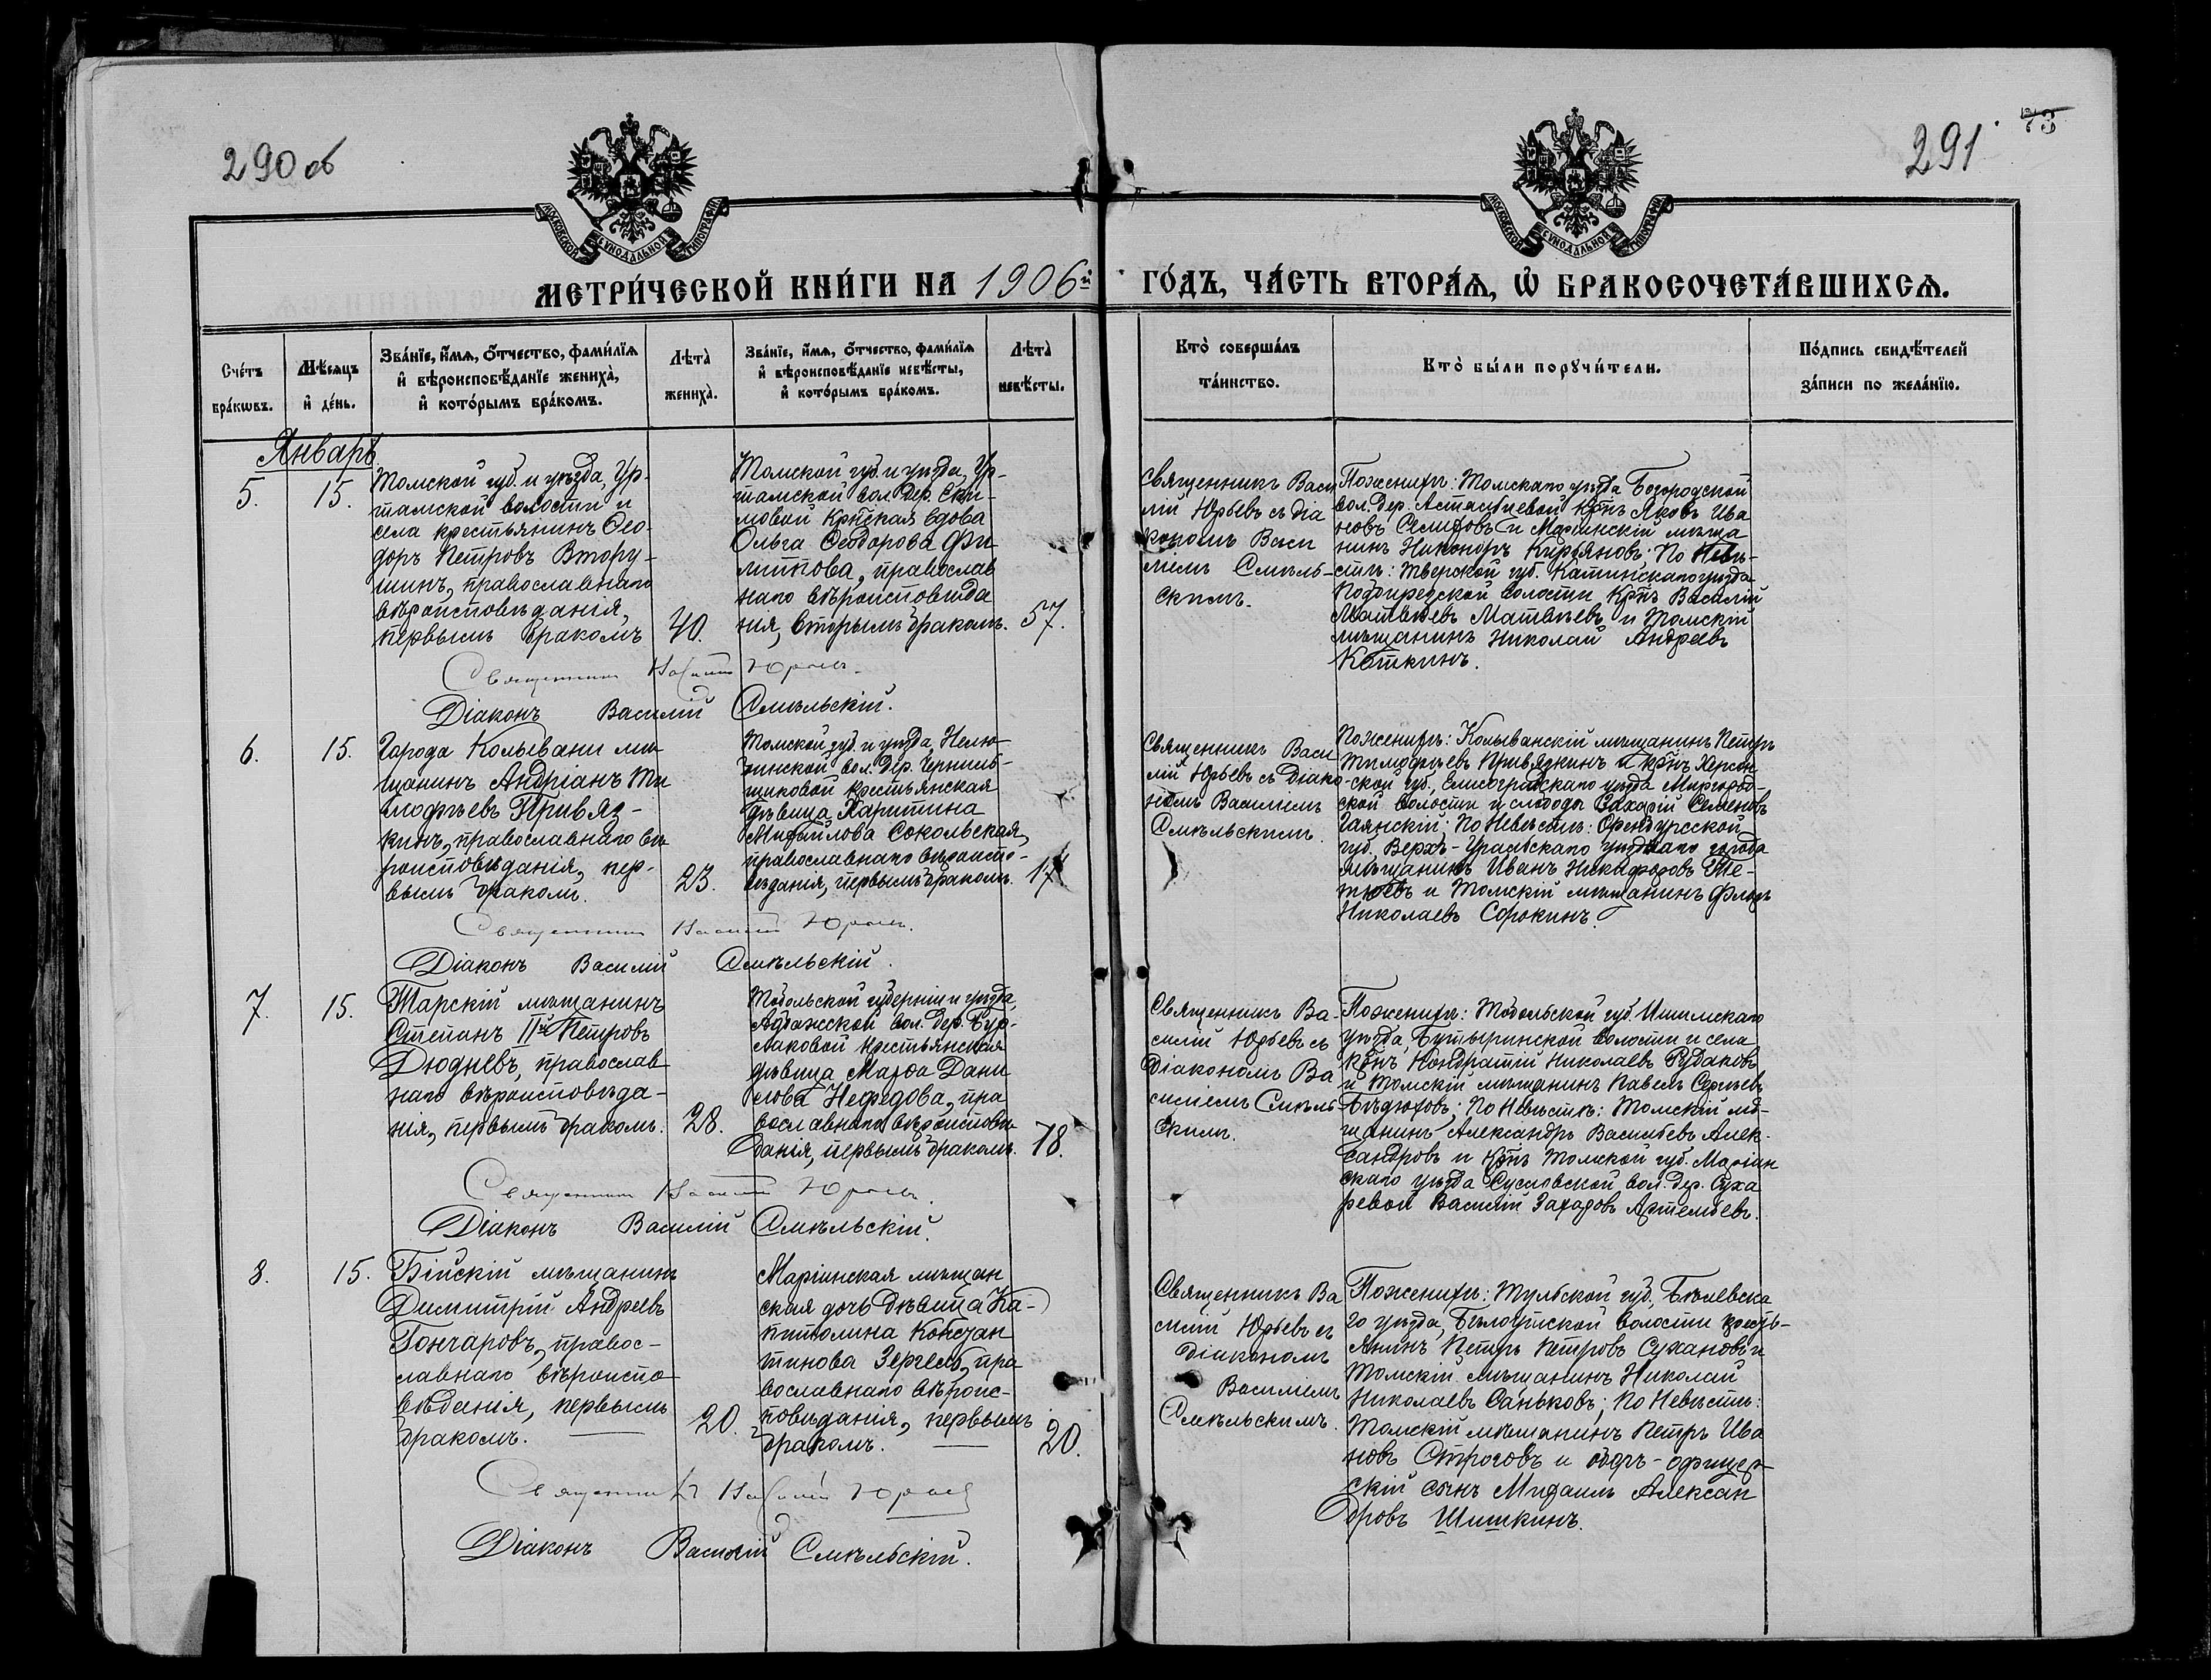 290 об
291
73
МОСКОВСКОЙ СѴНОДАЛЬНОЙ ТИПОГРАФІИ
МОСКОВСКОЙ СѴНОДАЛЬНОЙ ТИПОГРАФІИ
МЕТРИ́ЧЕСКОЙ КНИ́ГИ НА 1906й ГО́ДЪ, ЧА́СТЬ ВТОРА́Ѧ, Ѽ БРАКОСОЧЕТА́ВШИХСѦ.
Сче́тъ бра́кѡвъ.
Мѣ́сяцъ и҆ де́нь.
Зва́нїе, и҆́мѧ, ѻ҆́тчество, фами́лїѧ и҆ вѣроисповѣ́данїе жениха̀, и҆ кото́рымъ бра́комъ.
Лѣта̀ жениха̀.
Зва́нїе, и҆́мѧ, ѻ҆́тчество, фами́лїѧ и҆ вѣроисповѣ́данїе невѣ́сты, и҆ кото́рымъ бра́комъ.
Лѣта̀ невѣ́сты.
Кто̀ соверша́лъ та́инство.
Кто̀ бы́ли порꙋчи́тели.
По́дпись свидѣ́телей за́писи по жела́нїю.
Январь
5.
15.
Томской губ. и уѣзда, Ур-
тамской волости и
села крестьянинъ Ѳео-
доръ Петровъ Втору-
шинъ, православнаго
вѣроисповѣданія,
первымъ бракомъ
40.
Томской губ. и уѣзда, Ур-
тамской вол. дер. Ски-
мовой крѣская вдова
Ольга Ѳеодорова Фи-
липпова, православ
наго вѣроисповѣда
нія, вторымъ бракомъ.
57.
Священникъ Васи
лій Юрьевъ съ діа
кономъ Васи
ліемъ Смѣль-
скимъ.
По женихѣ: Томскаго уѣзда Богородской
вол. дер. Астальцевой крнъ Яковъ Ива
новъ Селифовъ и Маріинскій мѣща
нинъ Никоноръ Кирьяновъ; По Невѣ-
стѣ: Тверской губ. уѣзда
волости крнъ Василій
Матвѣевъ Матвѣевъ и Томскій
мѣщанинъ Николай Андреевъ
Коткинъ.
Священникъ Василій Юрьевъ.
Діаконъ Василій Смѣльскій.
6.
15.
Города Колывани мѣ
щанинъ Андріанъ Ти
моѳѣевъ Привяз-
кинъ, православнаго вѣ
роисповѣданія, пер-
вымъ бракомъ.
23.
Томской губ. и уѣзда, Нелю-
бинской вол. дер. Черниль-
щиковой крестьянская
дѣвица Харитина
Михайлова Сокольская,
православнаго вѣроиспо-
вѣданія, первымъ бракомъ.
17
Священникъ Васи
лій Юрьевъ съ Діако-
номъ Василіемъ
Смѣльскимъ.
По женихѣ: Колыванскій мѣщанинъ Петръ
Тимоѳѣевъ Привязкинъ и крнъ Херсон
ской губ., Елисоградскаго уѣзда Миргород-
ской волости и слободы Захарій Семеновъ
Гаянскій; По Невѣстѣ: Оренбургской
губ. Верхъ-Уральскаго уѣзднаго города
мѣщанинъ Иванъ Никифоровъ Те-
тюевъ и Томскій мѣщанинъ Флоръ
Николаевъ Сорокинъ.
Священникъ Василій Юрьевъ.
Діаконъ Василій Смѣльскій.
7.
15.
Тарскій мѣщанинъ
Степанъ IIй Петровъ
Дюдневъ, православ
наго вѣроисповѣда-
нія, первымъ бракомъ.
28.
Тобольской губерніи и уѣзда,
Абалакской вол. дер. Бур-
лаковой крестьянская
дѣвица Марѳа Дани
лова Нефедова, пра
вославнаго вѣроисповѣ
данія, первымъ бракомъ.
18.
Священникъ Ва-
силій Юрьевъ съ
Діакономъ Ва
силіемъ Смѣль-
скимъ.
По женихѣ: Тобольской губ. Ишимскаго
уѣзда, Бутыринской волости и села
крнъ Кондратій Николаевъ Рудаковъ
и Томскій мѣщанинъ Павелъ Сергѣевъ
Бѣдюховъ; По Невѣстѣ: Томскій мѣ-
щанинъ Александръ Васильевъ Алек-
сандровъ и крнъ Томской губ. Маріин
скаго уѣзда Сусловской вол. дер. Суха
ревой Василій Захаровъ Артемьевъ.
Священникъ Василій Юрьевъ.
Діаконъ Василій Смѣльскій.
8.
15.
Бійскій мѣщанинъ
Димитрій Андреевъ
Гончаровъ, правос-
лавнаго вѣроиспо
вѣданія, первымъ
бракомъ.
20.
Маріинская мѣщан
ская дочь дѣвица Ка-
питолина Констан
тинова Зергель, пра
вославнаго вѣроис-
повѣданія, первымъ
бракомъ.
20.
Священникъ Ва
силій Юрьевъ съ
діакономъ
Василіемъ
Смѣльскимъ.
По женихѣ: Тульской губ., Бѣлевска
го уѣзда, волости кресть-
янинъ Петръ Петровъ Сухановъ и
Томскій мѣщанинъ Николай
Николаевъ Саньковъ; По Невѣстѣ:
Томскій мѣщанинъ Петръ Ива
новъ Строговъ и оберъ-офицер-
скій сынъ Михаилъ Алексан
дровъ Шишкинъ.
Священникъ Василій Юрьевъ
Діаконъ Василій Смѣльскій.